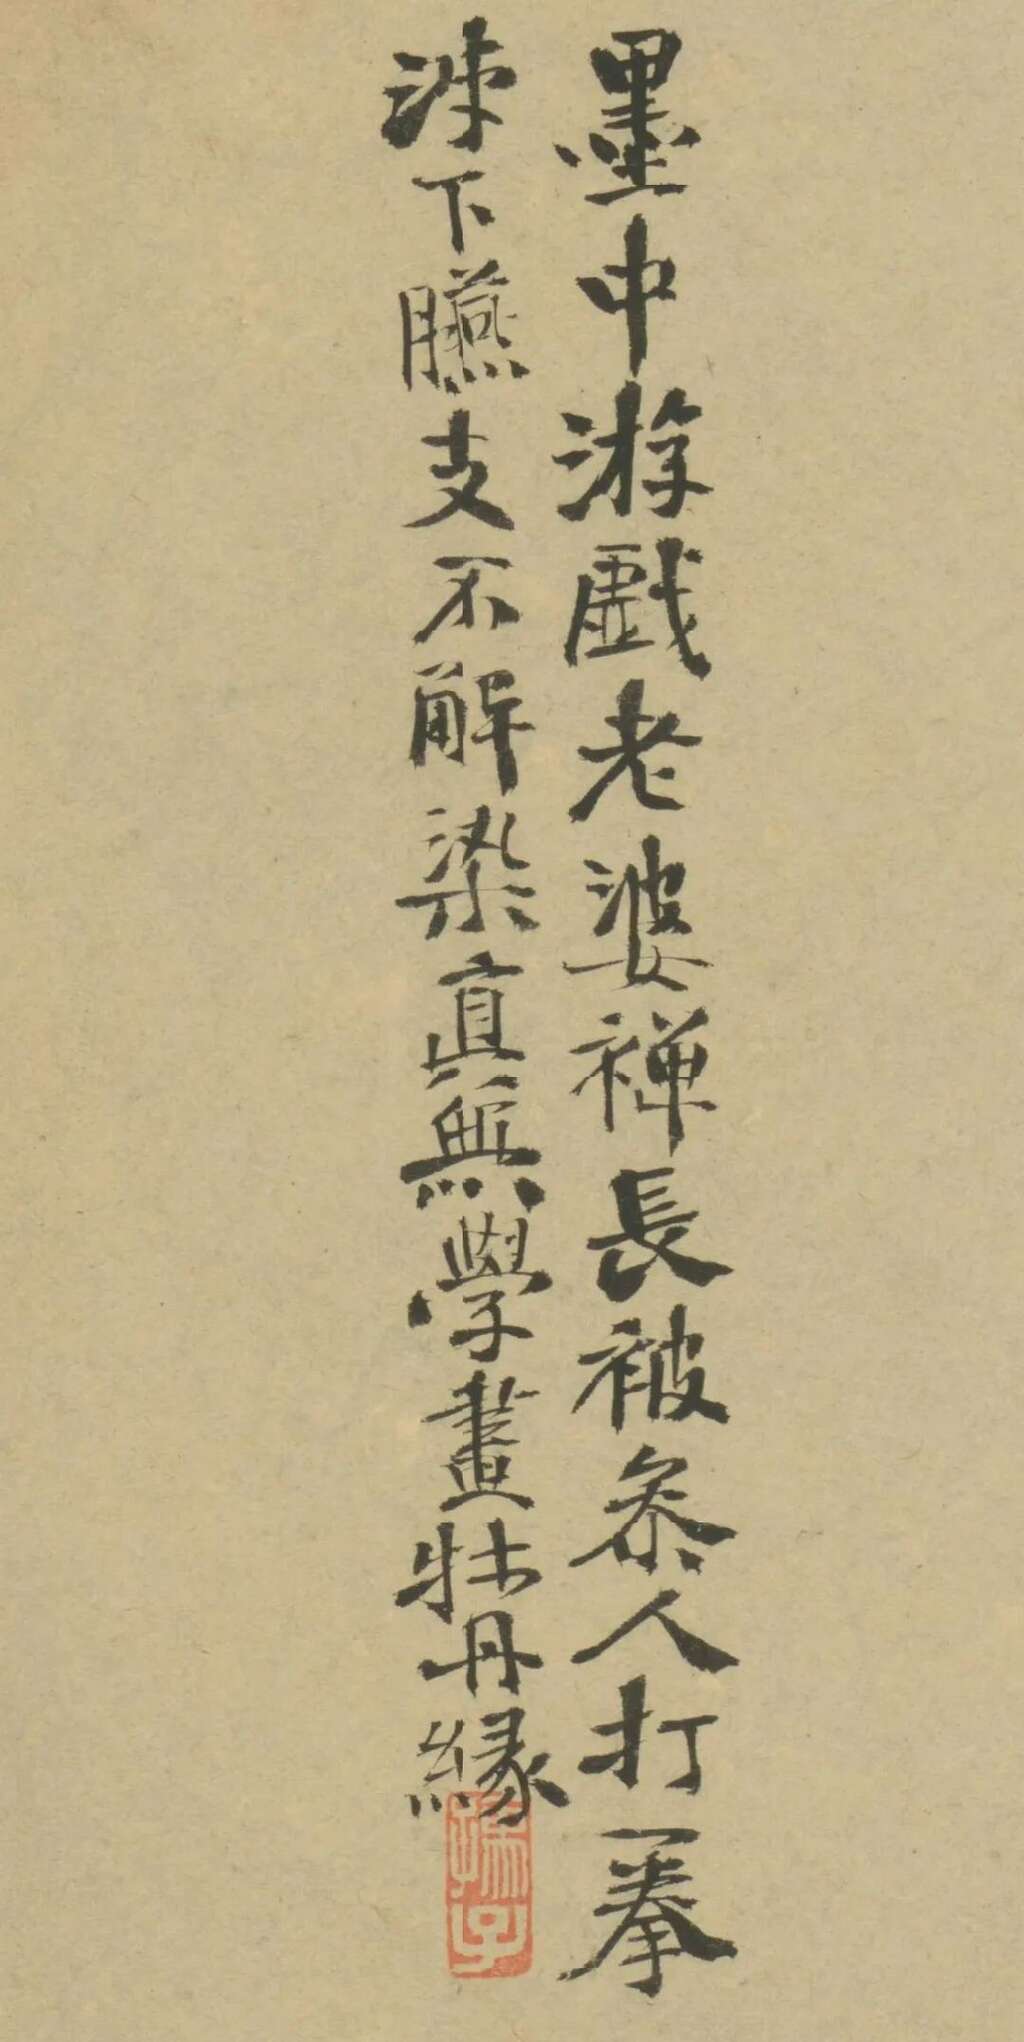 墨中游戲老婆禪長被參人打一拳
涕下臙支不解染真無學畫牡丹緣